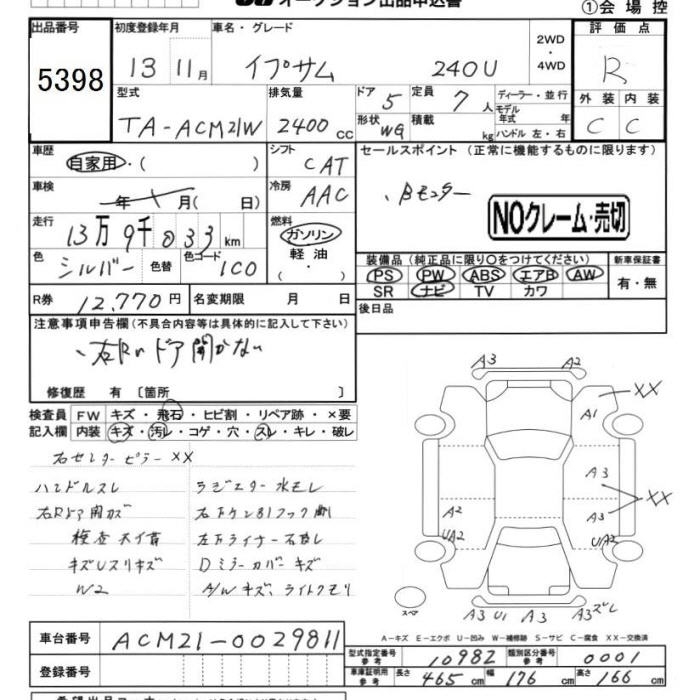 オークション出品申込書
①会場控
出品番号 5398
初度登録年月 13 11月
車名・グレード イプサム 240U
2WD・4WD
評価点 R
型式 TA-ACM21W
排気量 2400cc
ドア 5 定員 7人
形状 WG 積載 kg
ディーラー・並行
モデル年式 年
ハンドル 左・右
外装 C 内装 C
車歴 自家用・( )
シフト CAT
セールスポイント (正常に機能するものに限ります)
、Bモニター
NOクレーム・売切
車検 年 月( 日)
冷房 AAC
走行 13万9千033km
燃料 ガソリン・軽油・( )
色 シルバー 色替 色コード 1C0
装備品 (純正品に限り○をつけてください) 新車保証書
PS PW ABS エアB AW 有・無
SR ナビ TV カワ
R券 12,770円 名変期限 月 日
後日品
注意事項申告欄(不具合内容等は具体的に記入して下さい)
、右Rrドア開かない
修復歴 有 〔箇所 〕
検査員記入欄 FW キズ・飛石・ヒビ割・リペア跡・×要
内装 キズ・汚レ・コゲ・穴・スレ・キレ・破レ
右センターピラーXX
ハンドルスレ ラジエター水モレ
右Rドア開カズ
検査不可
W2 A/Wキズ、ライトクモリ
Dミラーカバーキズ
A3 A2
XX
A1
A3
XX
A3
A2
UA2 UA2
スペア
A3 U1 A3 A3ズレ
A-キズ E-エクボ U-凹み W-補修跡 S-サビ C-腐食 XX-交換済
車台番号 ACM21-0029811
登録番号
型式指定番号参考 10982 類別区分番号参考 0001
車庫証明用参考 長さ 465cm 幅 176cm 高さ 166cm